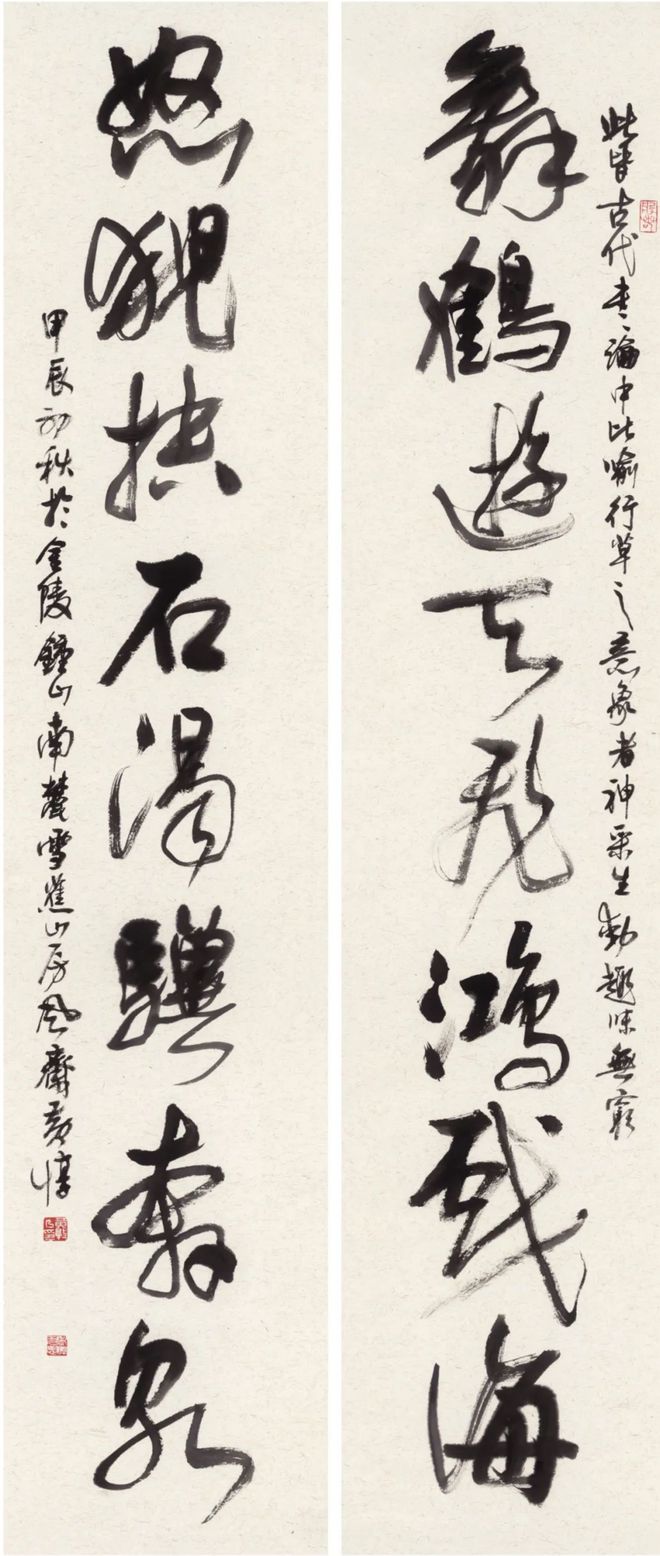 此皆古代書論中比喻行草之意象者神采生動趣味無窮
舞鶴遊天飛鴻戲海
怒猊抉石渴驥奔泉
甲辰初秋於金陵鍾山南麓雪蕉山房風齋黃惇